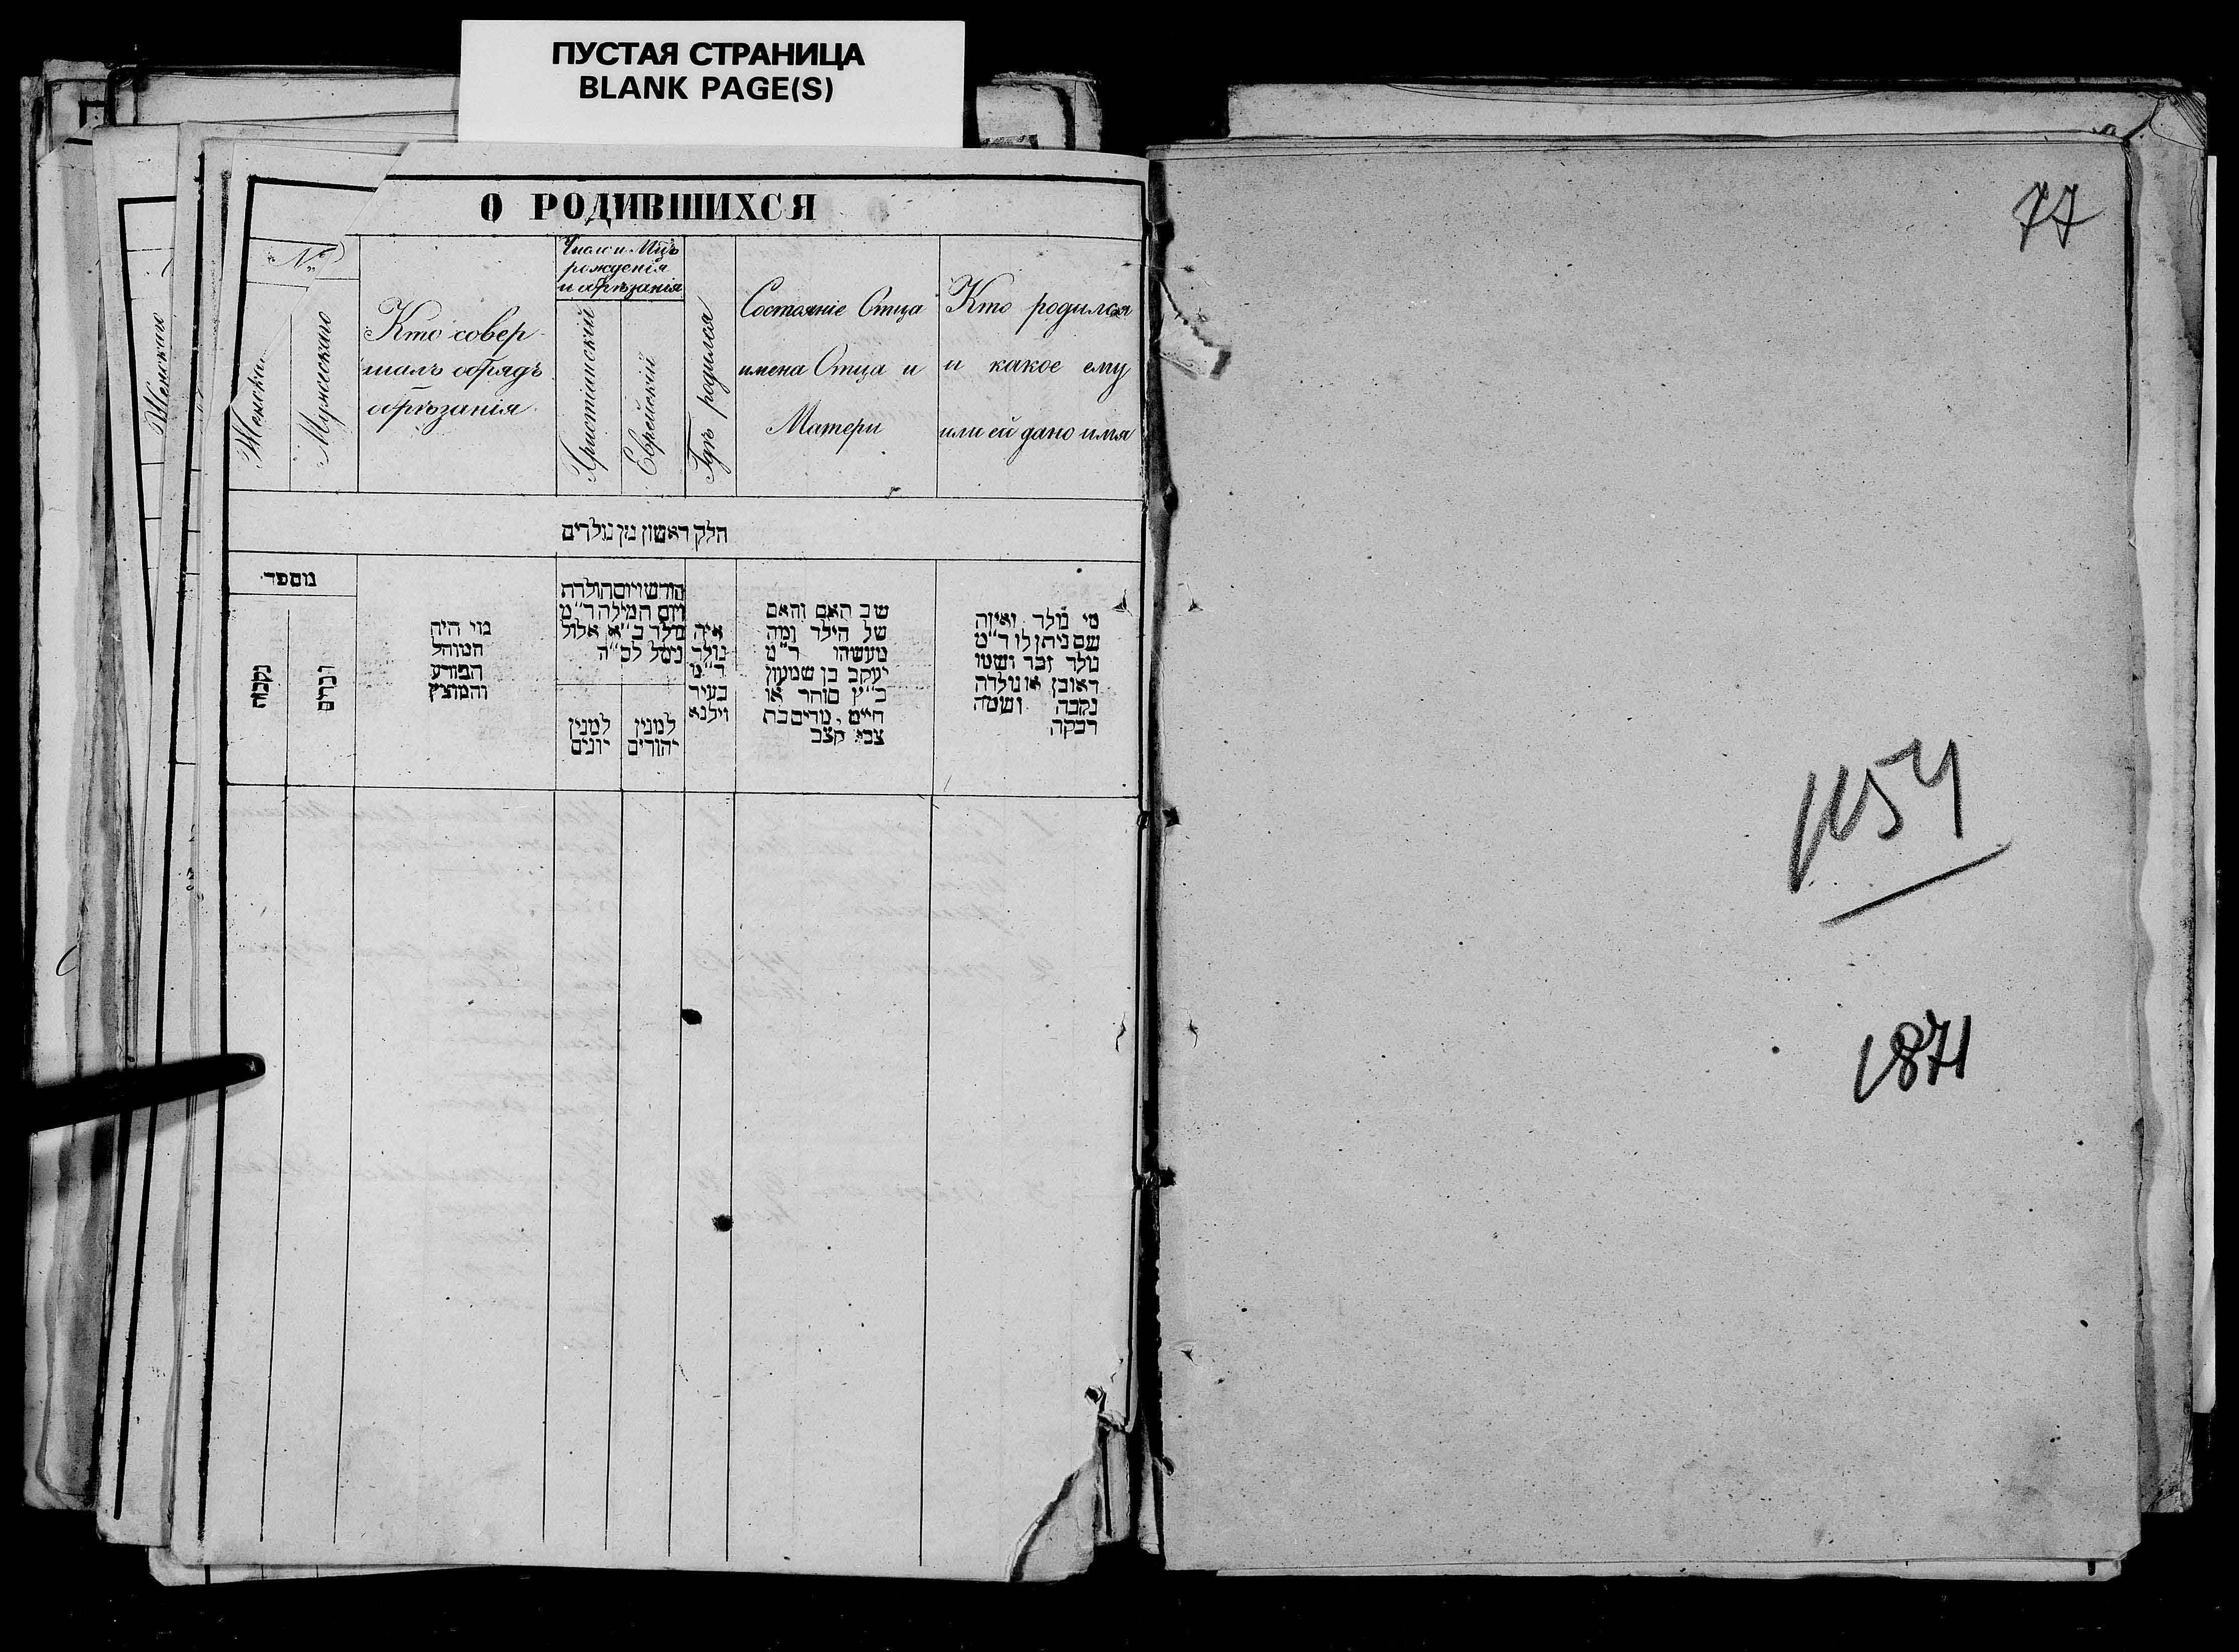 ПУСТАЯ СТРАНИЦА
BLANK PAGE(S)
О РОДИВШИХСЯ
№
Женска
Мужескаго
Кто совер-
шалъ обрядъ
обрѣзанія.
Число и Мцъ
рожденія
и обрѣзанія
Христіанскій
Еврейскій
Гдѣ родился
Состояніе Отца
имена Отца и
Матери
Кто родился
и какое ему
или ей дано имя
חלק ראשון מן נולדים
מספר
נקבה
זכרים
מי היה
המוהל
הפורע
והמוצץ
חודש ויום תולדת
ויום המילה ד״מ
נולד כ״א אלול
ניסל לס״ה
למנין
יונים
למנין
יהודים
איה
נולד
ד״מ
בעיר
וילנא
שב האם והאם
של הילד ומה
מעשהו ד״מ
יעקב בן שמעון
כ״ץ סוחר או
חייט, מרים בת
צבי קצב
מי נולד ואיזה
שם ניתן לו ד״מ
נולד זכר ושמו
ראובן או נולדה
נקבה ושמה
רבקה
Женскаго
77
1154
1871